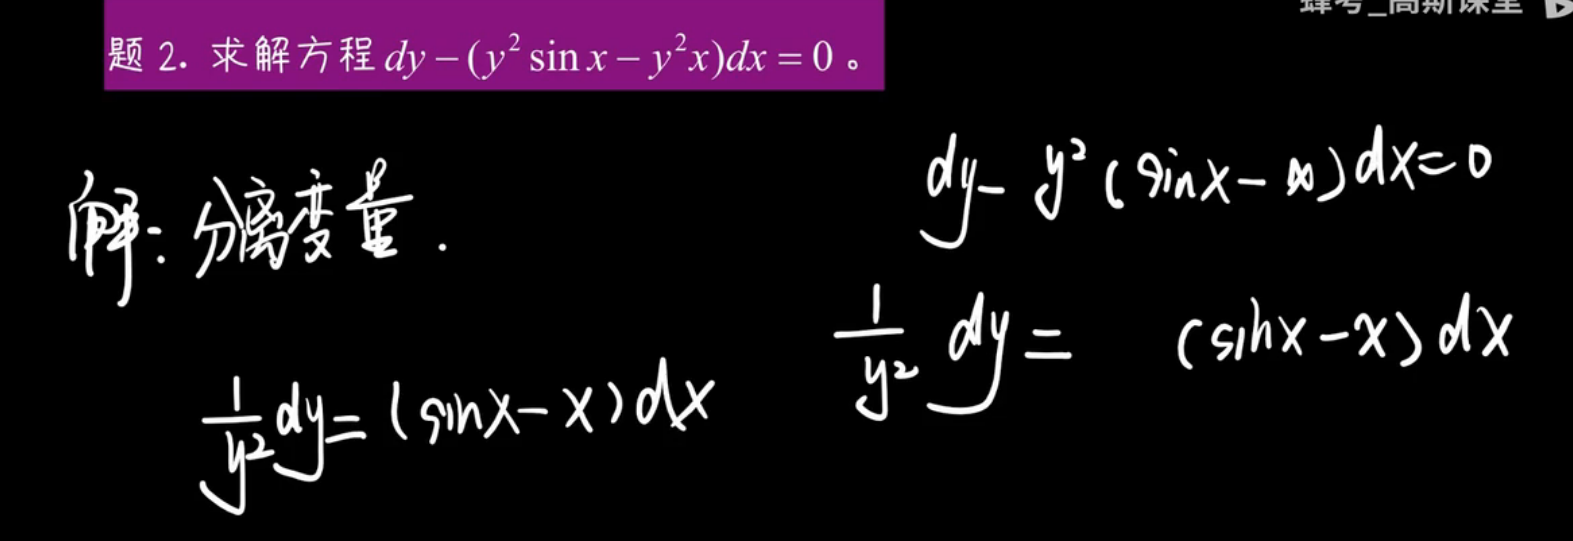 蜂考_高斯课堂
题 2. 求解方程 dy − (y² sin x − y²x)dx = 0 。
dy − y² (sinx − x) dx = 0
解: 分离变量.
1/y² dy = (sinx − x) dx
1/y² dy = (sinx − x) dx